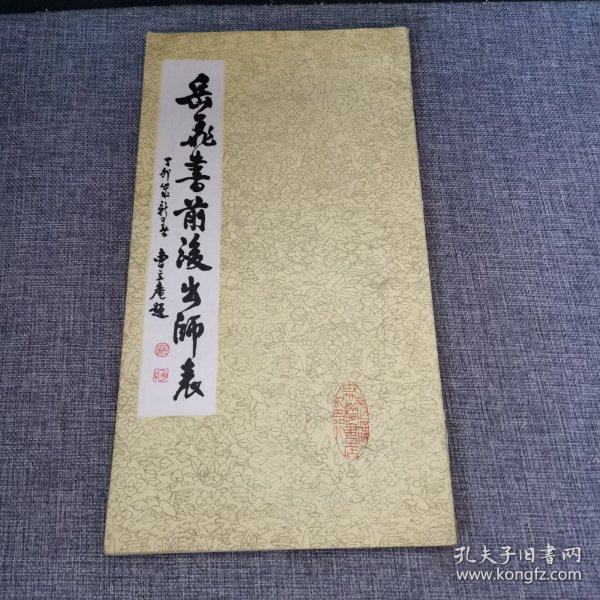 岳飛書前後出師表
丁卯歲新春 曹立庵題
孔夫子旧书网
www.kongfz.com